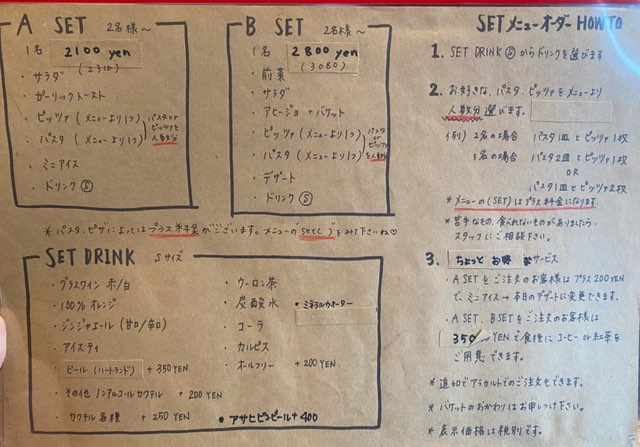 A SET 2名様〜
1名 2100 yen
(2310)
・サラダ
・ガーリックトースト
・ピッツァ (メニューより1つ)
・パスタ (メニューより1つ)
パスタor
ピッツァを
人数分
・ミニアイス
・ドリンク Ⓢ
B SET 2名様〜
1名 2800 yen
(3080)
・前菜
・サラダ
・アヒージョ+バケット
・ピッツァ (メニューより1つ)
・パスタ (メニューより1つ)
パスタ
or
ピッツァ
を人数分
・デザート
・ドリンク Ⓢ
※ パスタ、ピザによってはプラス料金がございます。メニューの"set( )"をみて下さいね♡
SET DRINK Sサイズ
・グラスワイン 赤/白
・100% オレンジ
・ジンジャエール (甘口/辛口)
・アイスティ
・ビール (ハートランド) +350YEN
・その他 ノンアルコールカクテル +200 YEN
・カクテル各種 +250 YEN
・ウーロン茶
・炭酸水 ●ミネラルウォーター
・コーラ
・カルピス
・オールフリー +200 YEN
●アサヒビンビール+400
SETメニューオーダー HOW TO
1. SET DRINK Ⓢ からドリンクを選びます
2. お好きな、パスタ、ピッツァをメニューより
人数分 選びます。
(例) 2名の場合 パスタ1皿とピッツァ1枚
3名の場合 パスタ2皿とピッツァ1枚
OR
パスタ1皿とピッツァ2枚
※メニューの(SET)はプラス料金になります。
※苦手なもの、食べれないものがありましたら、
スタッフにご相談下さい。
3. ちょっとお得なサービス
・A SETをご注文のお客様はプラス200YEN
で、ミニアイス→本日のデザートに変更できます。
・A SET、B SETをご注文のお客様は
350 YENで食後にコーヒー or 紅茶を
ご用意できます。
※追加でアラカルトでのご注文もできます。
※バケットのおかわりはお申しつけ下さい。
※表示価格は税別です。